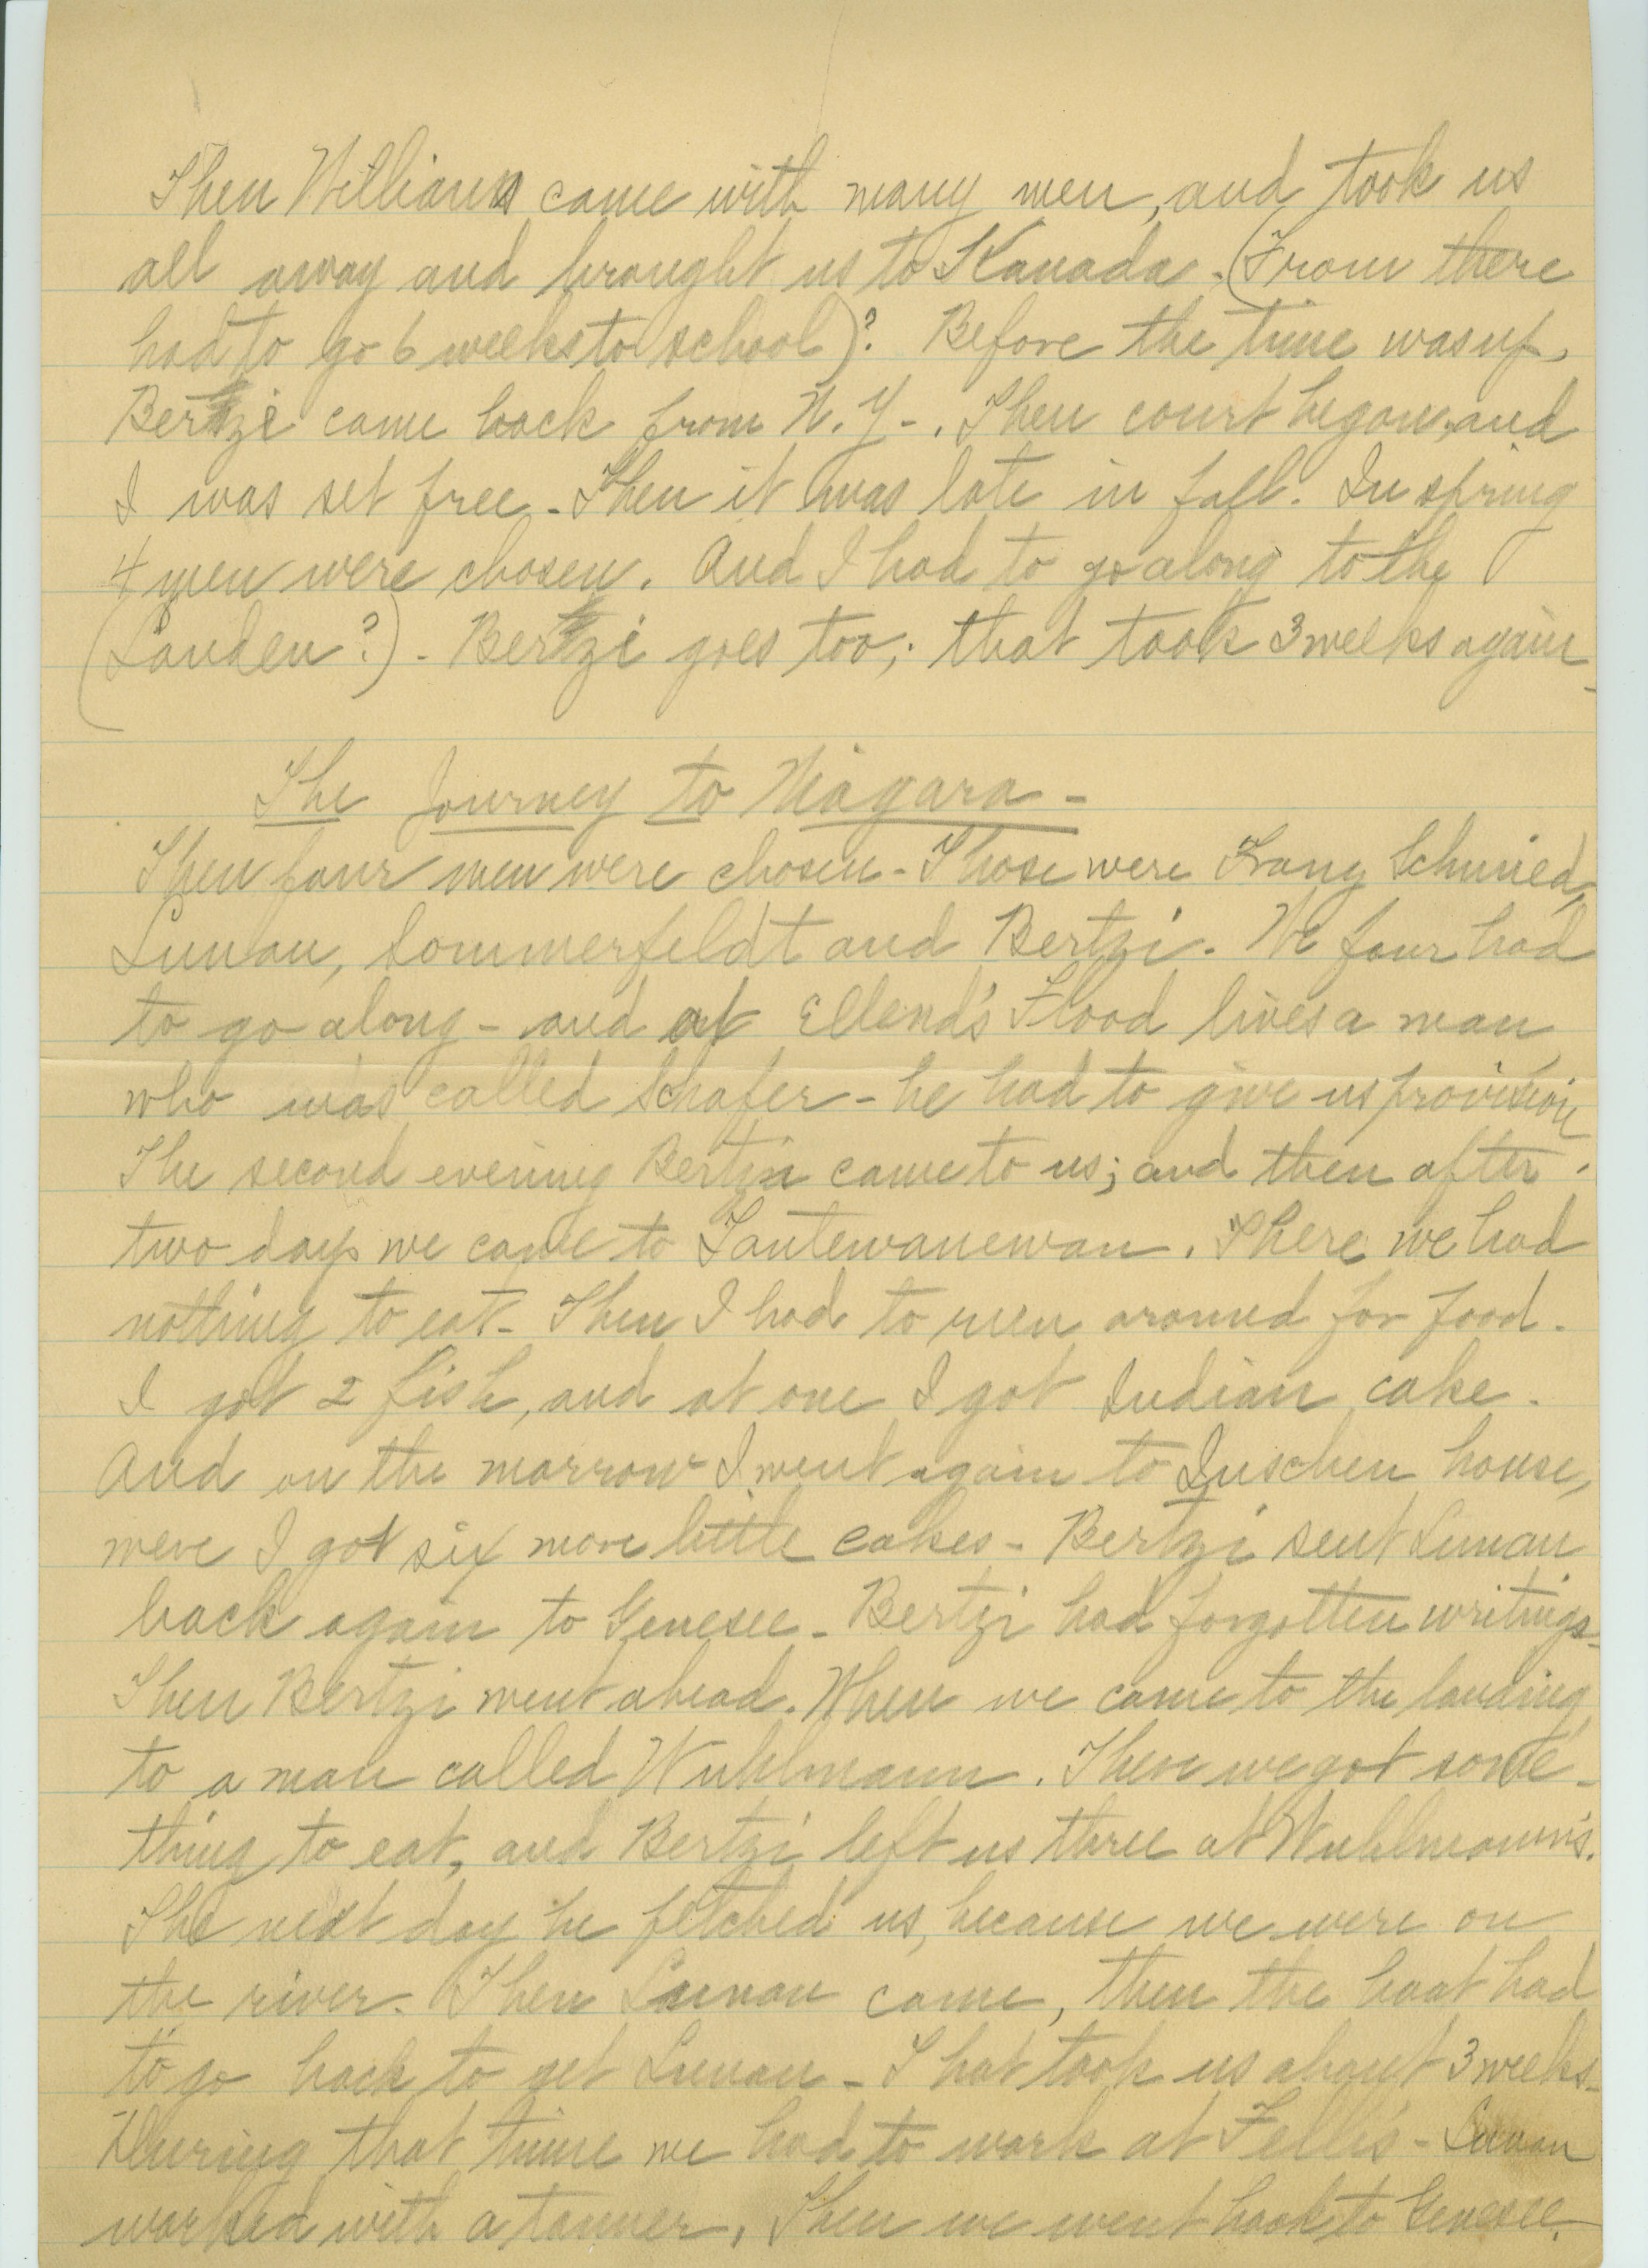 Then Williams came with many men, and took us
all away and brought us to Kanada. (From there
had to go 6 weeks to school)? Before the time was up,
Bertzi came back from N. Y-. Then court began, and
I was set free. Then it was late in fall. In spring
4 men were chosen. And I had to go along to the
(Landen?) - Bertzi goes too; that took 3 weeks again -
The Journey to Niagara -
Then four men were chosen - Those were Franz Schmied,
Lunau, Sommerfeldt and Bertzi. We four had
to go along - and at Elland's Flood lives a man
who was called Schafer - he had to give us provision
The second evening Bertzi came to us; and then after
two days we came to Tantewanewan. There we had
nothing to eat - Then I had to run around for food -
I got 2 fish, and at one I got Indian cake -
And on the morrow I went again to Inschen house,
were I got six more little cakes - Bertzi sent Lunau
back again to Genesee - Bertzi had forgotten writings -
Then Bertzi went ahead. When we came to the landing
to a man called Wuhlmann. There we got some -
thing to eat, and Bertzi left us three at Wuhlmann's.
The next day he fetched us, because we were on
the river. Then Lunau came, then the boat had
to go back to get Lunau - That took us about 3 weeks -
During that time we had to work at Fellis - Lunau
worked with a tanner. Then we went back to Genesee.